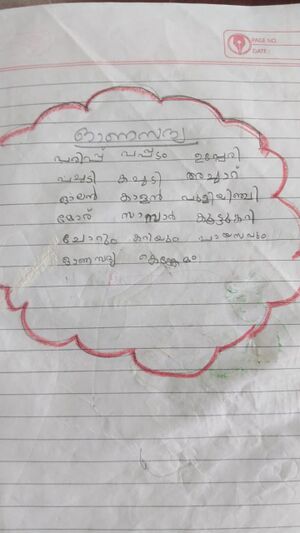 PAGE NO.
DATE:
ഓണസദ്യ
പരിപ്പ് പപ്പടം ഉപ്പേരി
പച്ചടി കിച്ചടി അച്ചാറ്
ഓലൻ കാളൻ പുളിയിഞ്ചി
മോര് സാമ്പാർ കൂട്ടുകറി
ചോറും കറിയും പായസവും
ഓണസദ്യ കെങ്കേമം